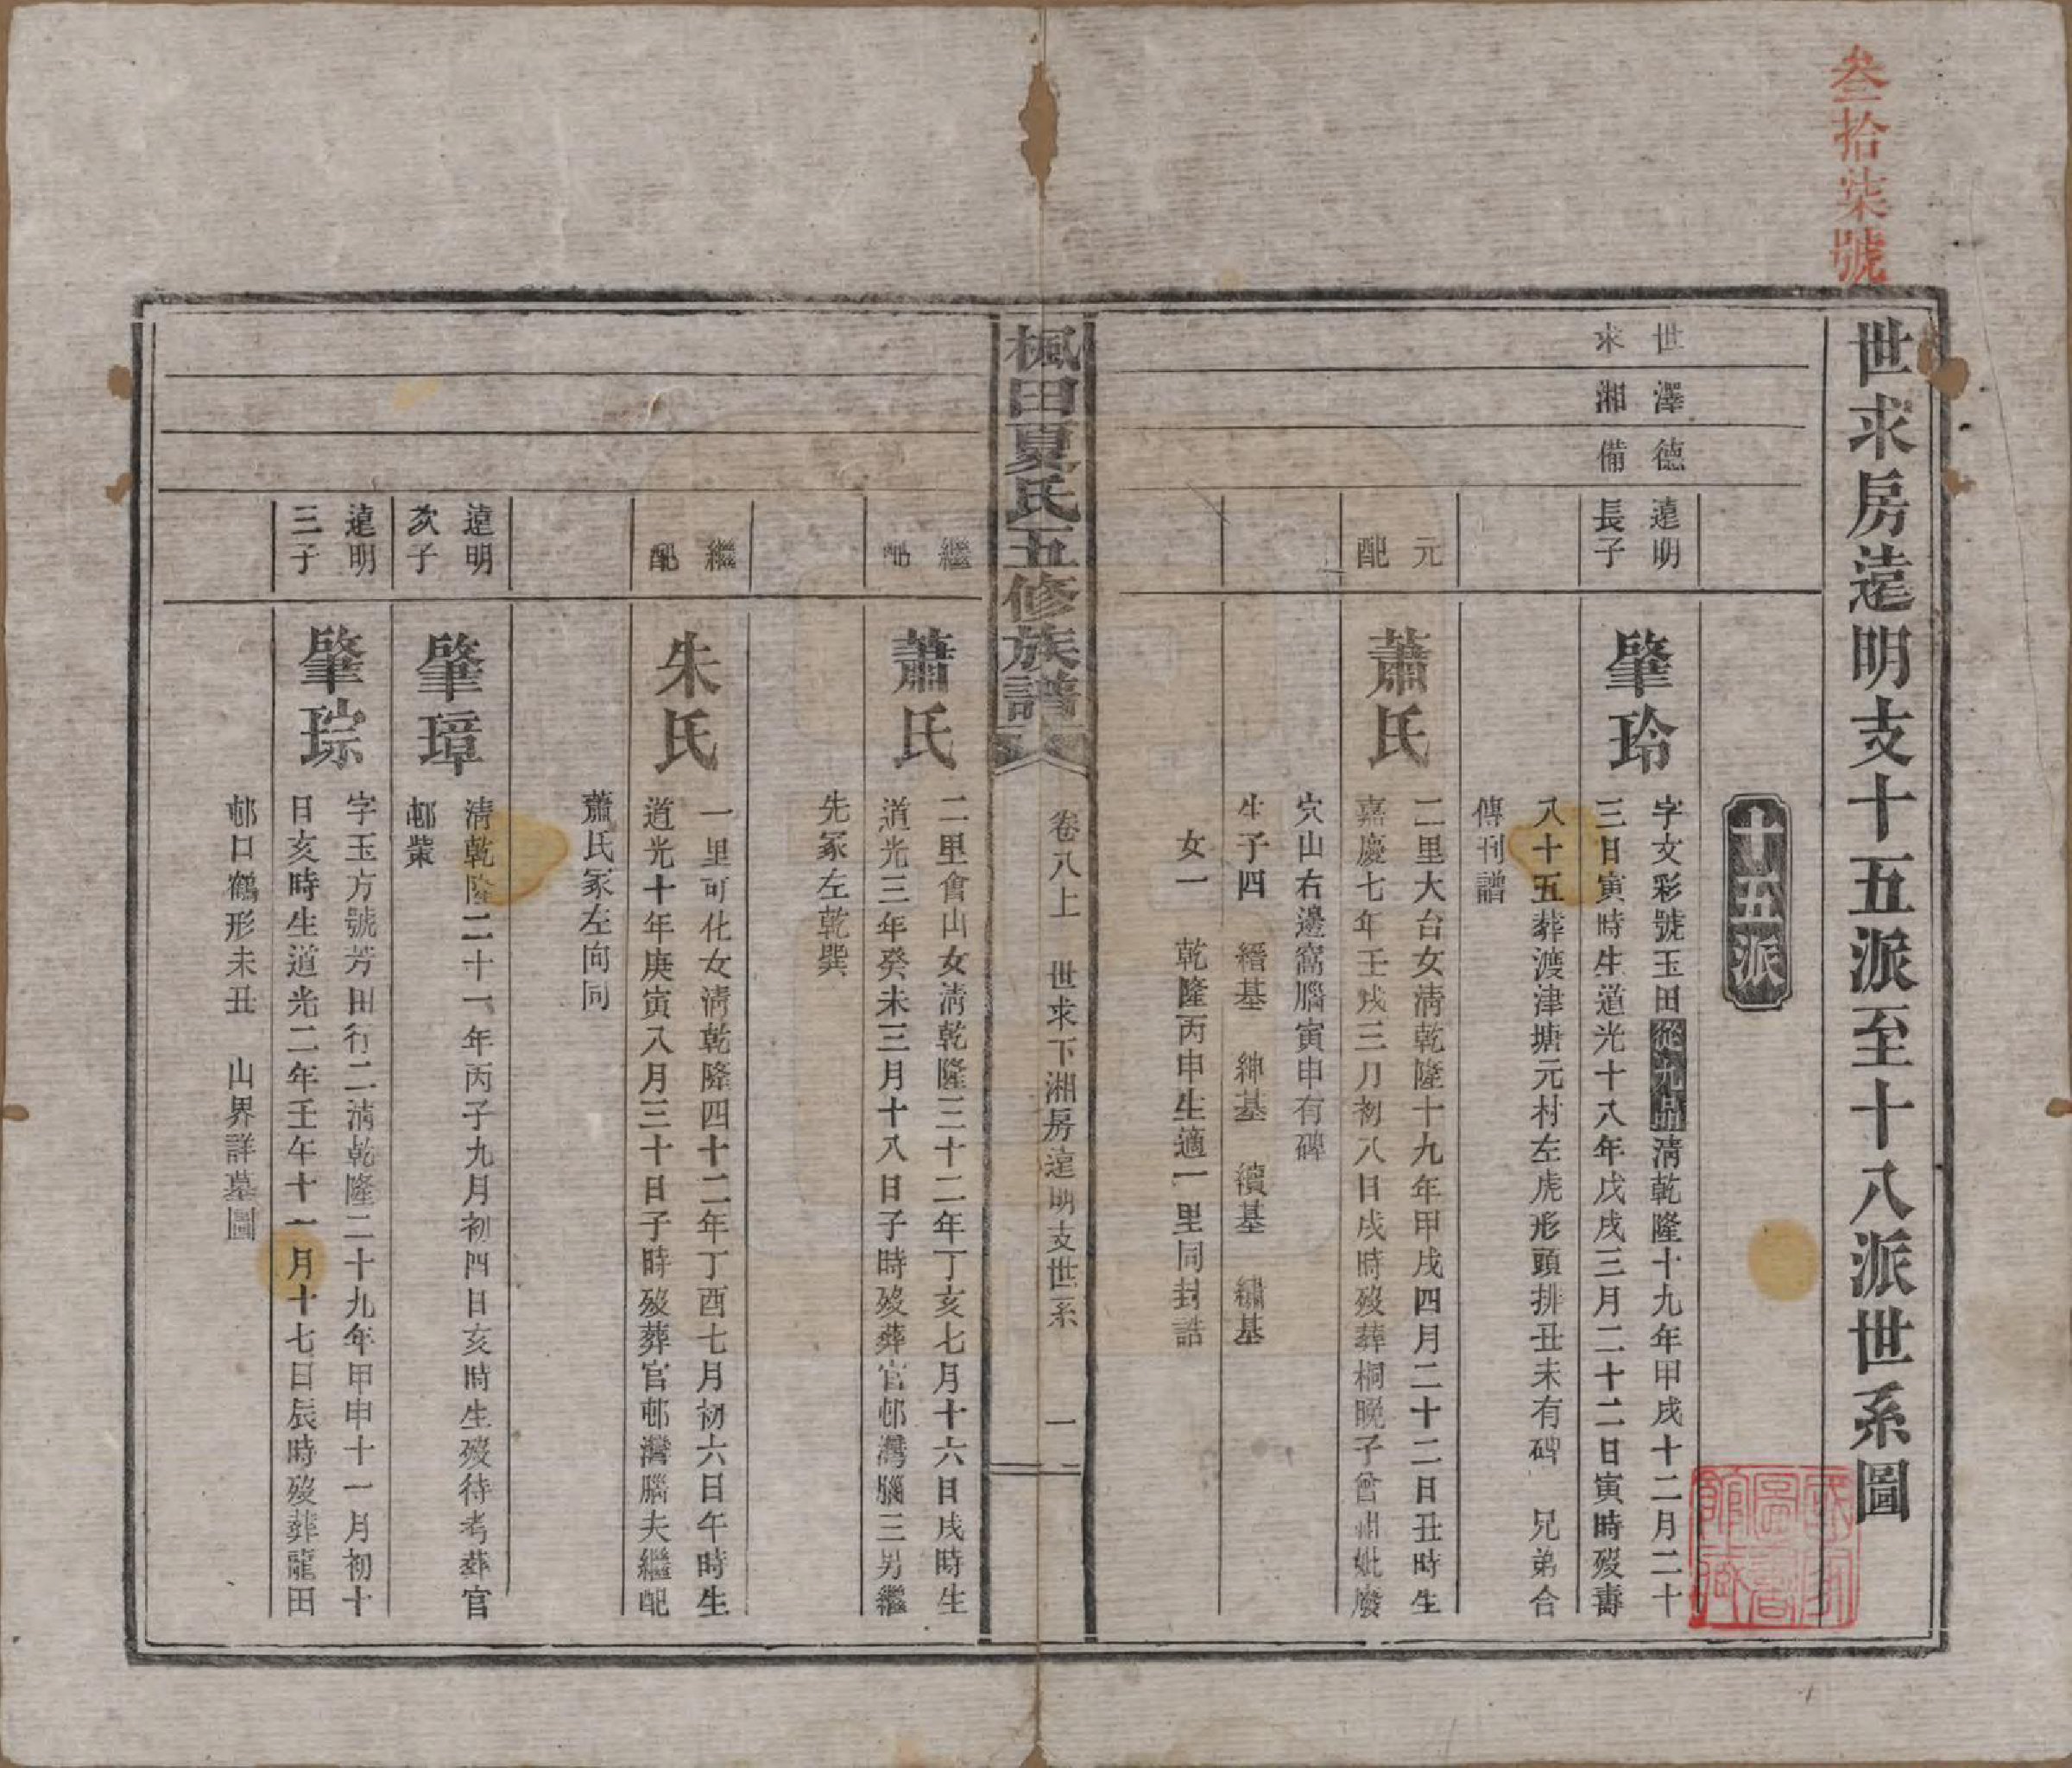 叁拾柒號
世求房遠明支十五派至十八派世系圖
十五派
世澤德遠明
求湘備長子
肇玲
字文彩號玉田從九品清乾隆十九年甲戌十二月二十
三日寅時生道光十八年戊戌三月二十二日寅時歿壽
八十五葬渡津塘元村左虎形頭排丑未有碑 兄弟合
傳刊譜
元配
蕭氏
二里大台女清乾隆十九年甲戌四月二十二日丑時生
嘉慶七年壬戌三月初八日戌時歿葬桐晚子曾州妣廢
穴山右邊窩腦寅申有碑
生子四 縉基 紳基 績基 繡基
女一 乾隆丙申生適一里同封誥
楓田夏氏五修族譜
卷八上 世求下湘房遠明支世系 一
繼配
蕭氏
二里會山女清乾隆三十二年丁亥七月十六日戌時生
道光三年癸未三月十八日子時歿葬官邨灣腦三男繼
先冢左乾巽
繼配
朱氏
一里可化女清乾隆四十二年丁酉七月初六日午時生
道光十年庚寅八月三十日子時歿葬官邨灣腦夫繼配
蕭氏冢左向同
遠明次子
肇璋
清乾隆二十一年丙子九月初四日亥時生歿待考葬官
邨棠
遠明三子
肇琮
字玉方號芳田行二清乾隆二十九年甲申十一月初十
日亥時生道光二年壬午十一月十七日辰時歿葬龍田
邨口鶴形未丑 山界詳墓圖
國家圖書館藏